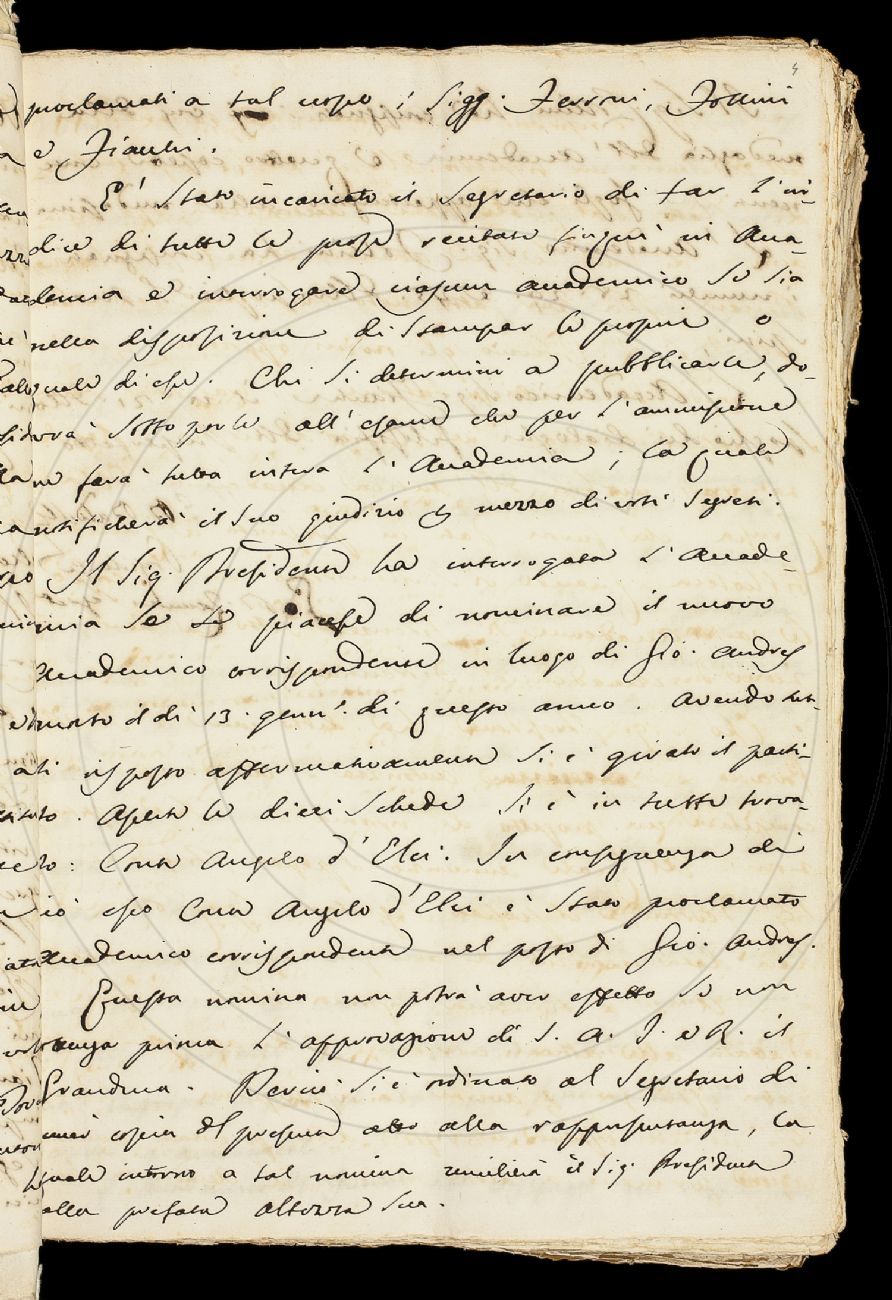 4
proclamati a tal uopo i Sigg. Ferroni, Follini
e Fiacchi.
E' stato incaricato il Segretario di far l'in-
dice di tutte le prose recitate finquì in Acca-
demia e interrogare ciascun accademico se sia
nella disposizione di stampar le proprie o
quale di esse. Chi si determini a pubblicarle, do-
vrà sottoporle all'esame che per l'ammissione
ne farà tutta intera l'Accademia; la quale
notificherà il suo giudizio p mezzo di voti segreti.
Il Sig. Presidente ha interrogata l'Accade-
mia se le piacesse di nominare il nuovo
Accademico corrispondente in luogo di Gio. Andres
morto il dì 13. genn. di questo anno. Avendo tut-
ti risposto affermativamente si è girato il parti-
to. Aperte le dieci schede si è in tutte trova-
to: Conte Angelo d'Elci. In conseguenza di
ciò esso Conte Angelo d'Elci è stato proclamato
Accademico corrispondente nel posto di Gio. Andres.
Questa nomina non potrà aver effetto se non
venga prima l'approvazione di S. A. I. e R. il
Granduca. Perciò si è ordinato al Segretario di
unir copia del presente atto alla rappresentanza, la
quale intorno a tal nomina umilierà il Sig. Presidente
alla prefata Altezza Sua.